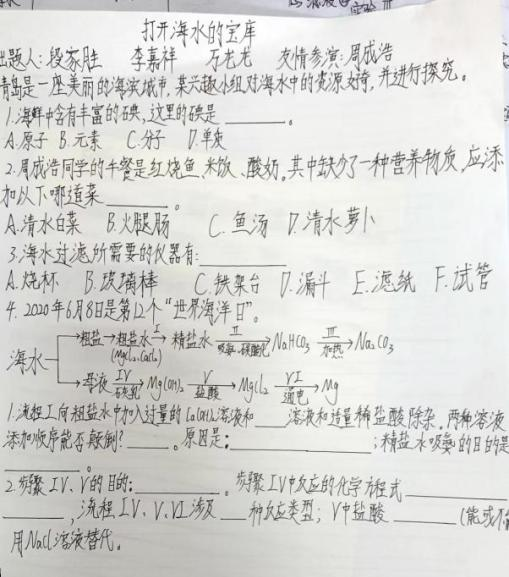 打开海水的宝库
出题人:段家胜 李嘉祥 万龙龙 友情参演:周成浩
青岛是一座美丽的海滨城市,某兴趣小组对海水中的资源好奇,并进行探究。
1.海鲜中含有丰富的碘,这里的碘是______。
A.原子 B.元素 C.分子 D.单质
2.周成浩同学的午餐是红烧鱼、米饭、酸奶。其中缺少了一种营养物质,应添
加以下哪道菜______。
A.清水白菜 B.火腿肠 C.鱼汤 D.清水萝卜
3.海水过滤所需要的仪器有:______
A.烧杯 B.玻璃棒 C.铁架台 D.漏斗 E.滤纸 F.试管
4.2020年6月8日是第12个“世界海洋日”。
海水→粗盐→粗盐水 I→精盐水 II 吸氨、碳酸化→NaHCO3 III 加热→Na2CO3
(MgCl2、CaCl2)
→母液 IV 石灰乳→Mg(OH)2 V 盐酸→MgCl2 VI 通电→Mg
1.流程I向粗盐水中加入过量的Ca(OH)2溶液和___溶液和适量稀盐酸除杂,两种溶液
添加顺序能否颠倒?____。原因是:______;精盐水吸氨的目的是
______。
2.步骤IV、V的目的:______。步骤IV中反应的化学方程式______
______,流程IV、V、VI涉及___种反应类型;V中盐酸____(能或不能
用NaCl溶液替代。